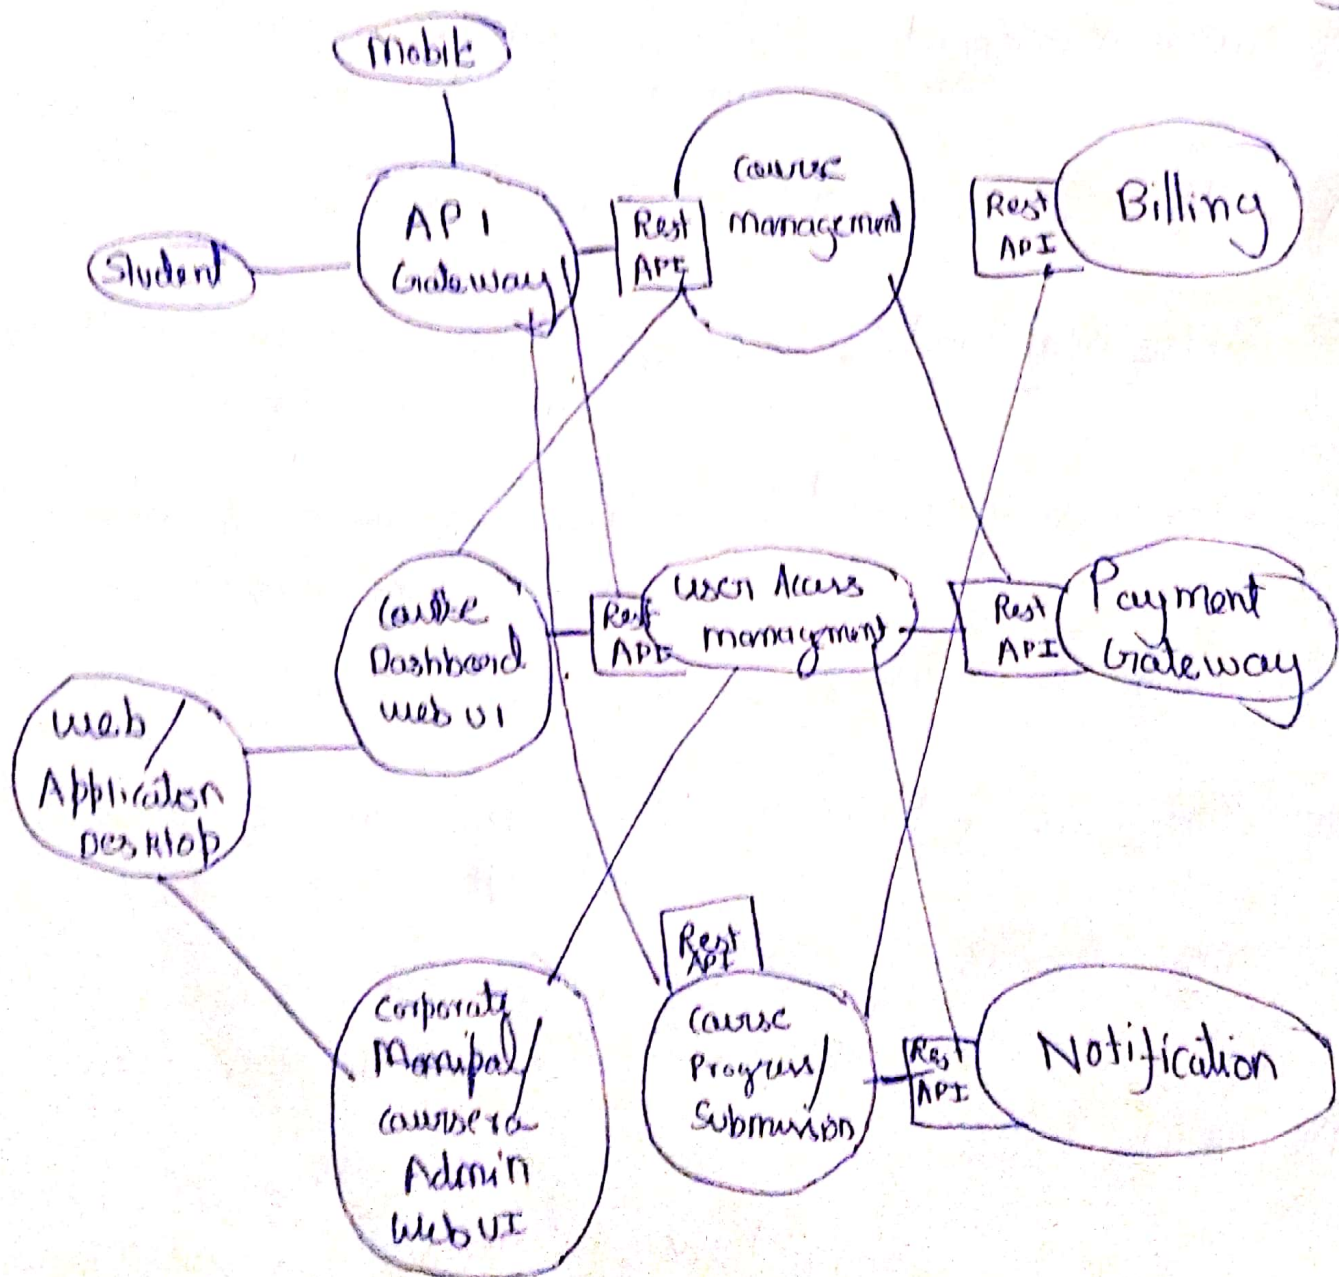 Mobile
Student
API
Gateway
Rest
API
Course
Management
Rest
API
Billing
Course
Dashboard
Web UI
Rest
API
User Access
Managment
Rest
API
Payment
Gateway
Web/
Application
Desktop
Corporate
Manipal/
Coursera
Admin
Web UI
Rest
API
Course
Progress/
Submission
Rest
API
Notification